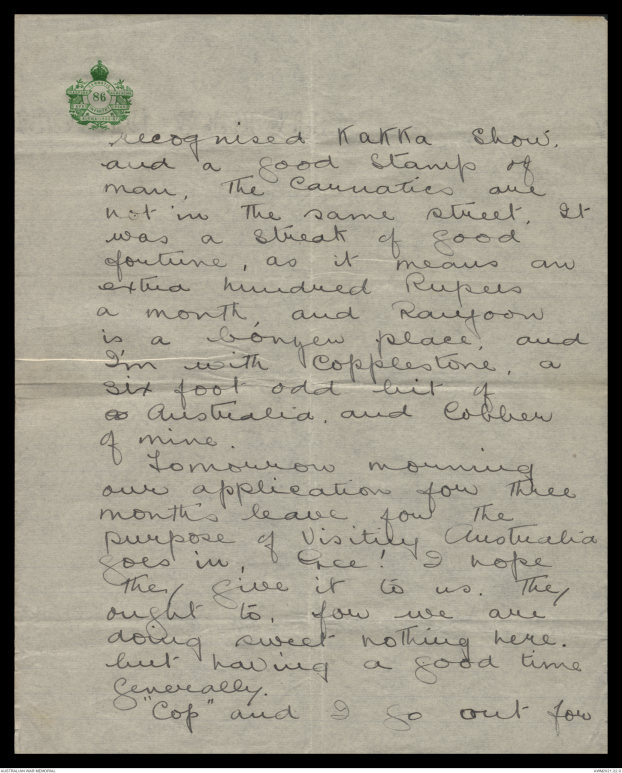 86
recognised Kakka Show.
and a good stamp of
man, The Carnatics are
not in the same street. It
was a streak of good
fortune, as it means an
extra hundred Rupees
a month, and Rangoon
is a bónyew place, and
I'm with Copplestone, a
six foot odd bit of
Australia, and Cobber
of mine.
Tomorrow morning
our application for three
months leave for the
purpose of Visiting Australia
goes in, Gee! I hope
they give it to us. They
ought to, for we are
doing sweet nothing here.
but having a good time
generally.
"Cop" and I go out for
AUSTRALIAN WAR MEMORIAL